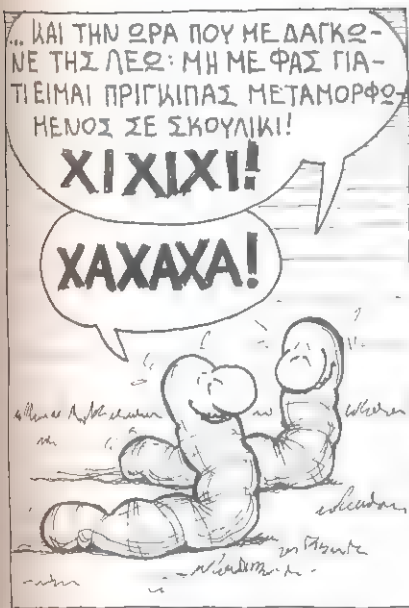 ... ΚΑΙ ΤΗΝ ΩΡΑ ΠΟΥ ΜΕ ΔΑΓΚΩ-
ΝΕ ΤΗΣ ΛΕΩ: ΜΗ ΜΕ ΦΑΣ ΓΙΑ-
ΤΙ ΕΙΜΑΙ ΠΡΙΓΚΙΠΑΣ ΜΕΤΑΜΟΡΦΩ-
ΜΕΝΟΣ ΣΕ ΣΚΟΥΛΙΚΙ!
ΧΙΧΙΧΙ!
ΧΑΧΑΧΑ!